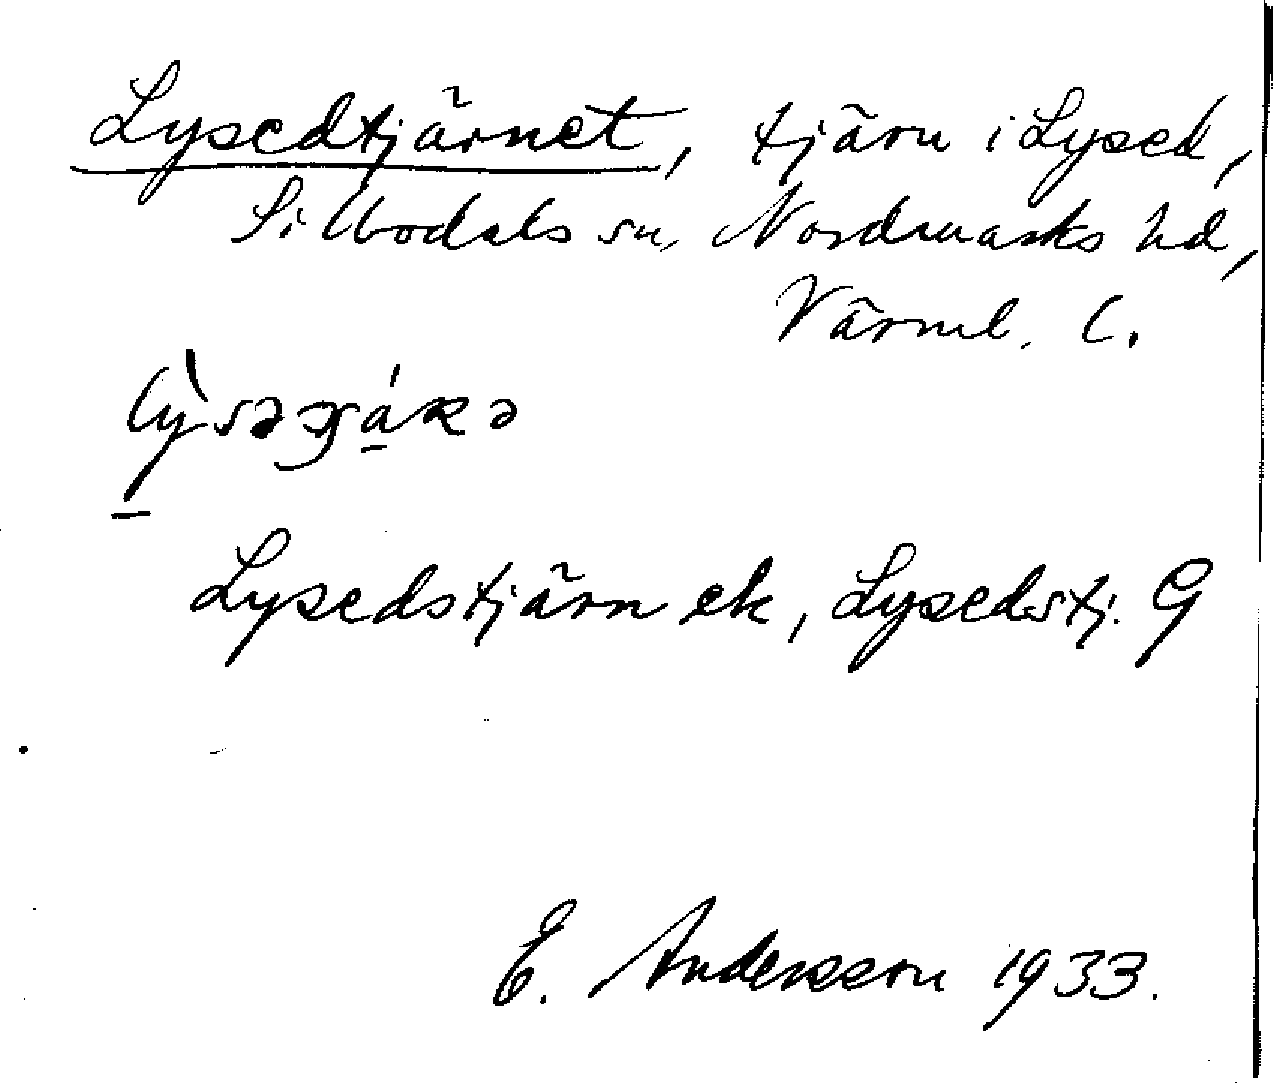 Lysedtjärnet, tjärn i Lysed,
Silbodals sn, Nordmarks hd,
Värml. l.
Lysedstjärn ek, Lysedstj. G
E. Andersson 1933.